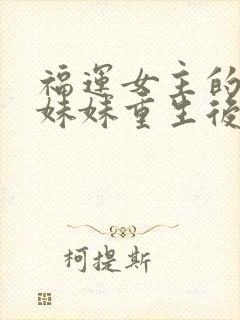 福運女主的
妹妹重生後
柯提斯